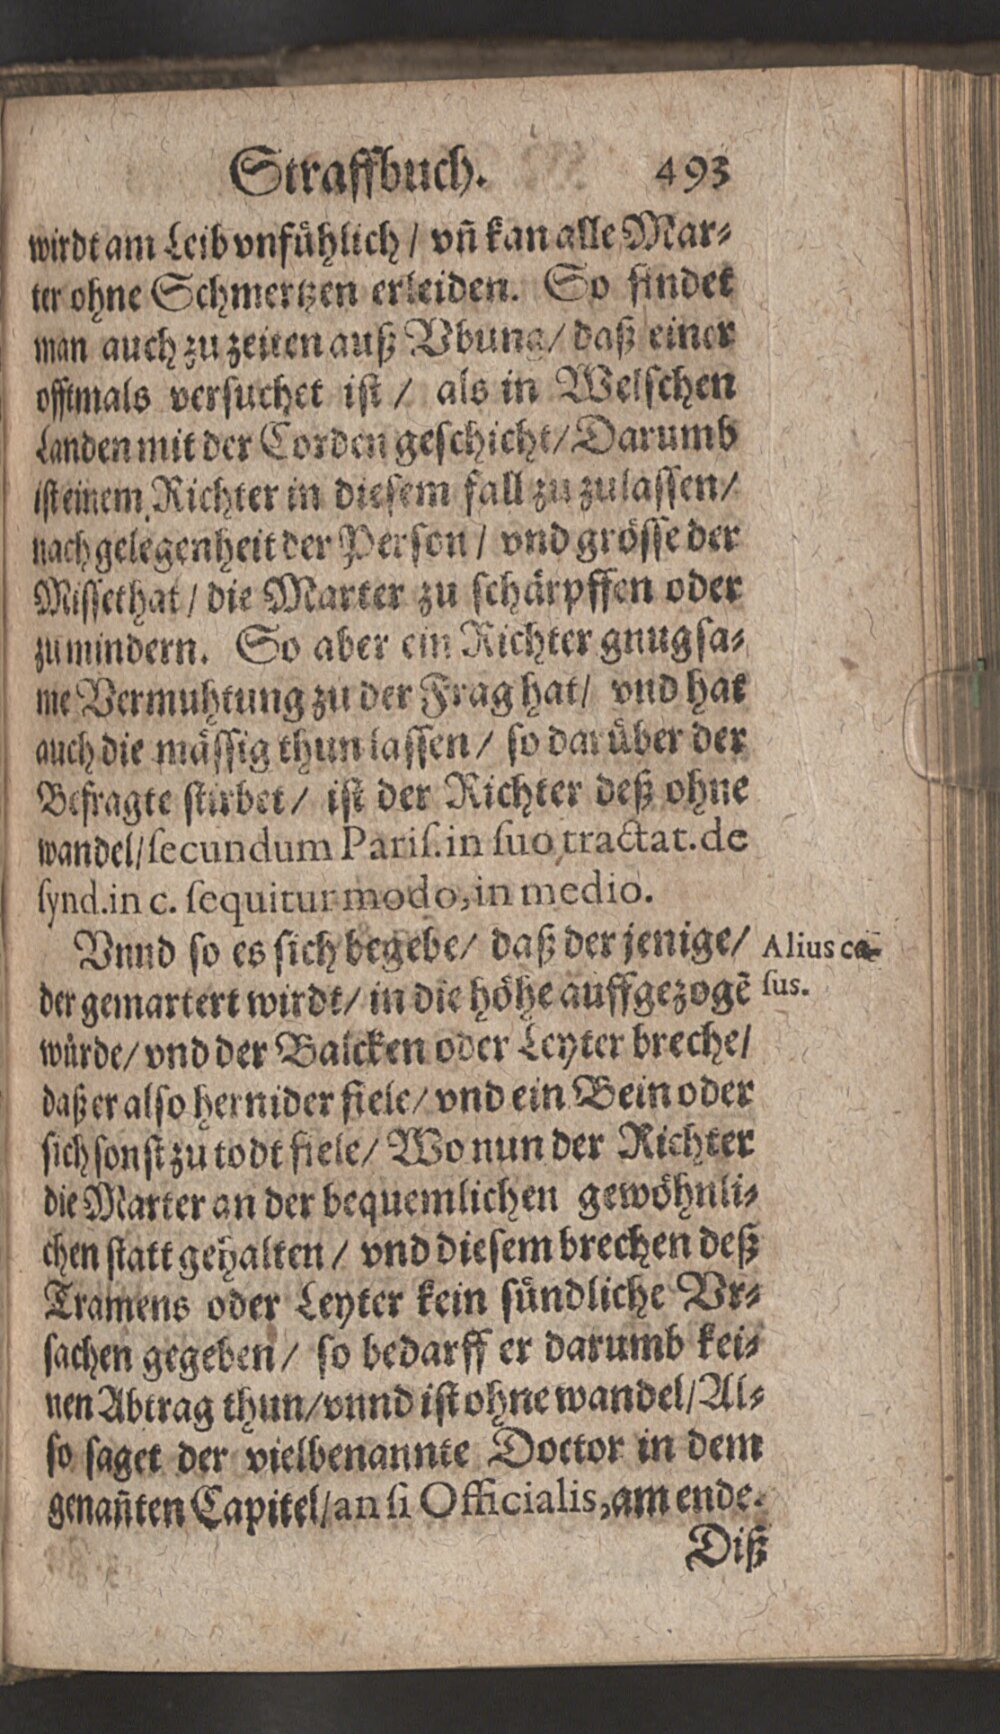 Straffbuch. 493
wirdt am Leib vnfühlich / vñ kan alle Mar⸗
ter ohne Schmertzen erleiden. So findet
man auch zu zeiten auß Vbung / daß einer
offtmals versuchet ist / als in Welschen
Landen mit der Corden geschicht / Darumb
ist einem Richter in diesem fall zu zulassen /
nach gelegenheit der Person / vnd grösse der
Missethat / die Marter zu schärpffen oder
zu mindern. So aber ein Richter gnugsa⸗
me Vermuhtung zu der Frag hat / vnd hat
auch die mässig thun lassen / so darüber der
Befragte stirbet / ist der Richter deß ohne
wandel / secundum Paris. in suo tractat. de
synd. in c. sequitur modo, in medio.
Vnnd so es sich begebe / daß der jenige /
der gemartert wirdt / in die höhe auffgezogẽ
würde / vnd der Balcken oder Leyter breche /
daß er also hernider fiele / vnd ein Bein oder
sich sonst zu todt fiele / Wo nun der Richter
die Marter an der bequemlichen gewöhnli⸗
chen statt gehalten / vnd diesem brechen deß
Tramens oder Leyter kein sündliche Vr⸗
sachen gegeben / so bedarff er darumb kei⸗
nen Abtrag thun / vnnd ist ohne wandel / Al⸗
so saget der vielbenannte Doctor in dem
genañten Capitel / an si Officialis, am ende.
Diß
Alius ca-
sus.